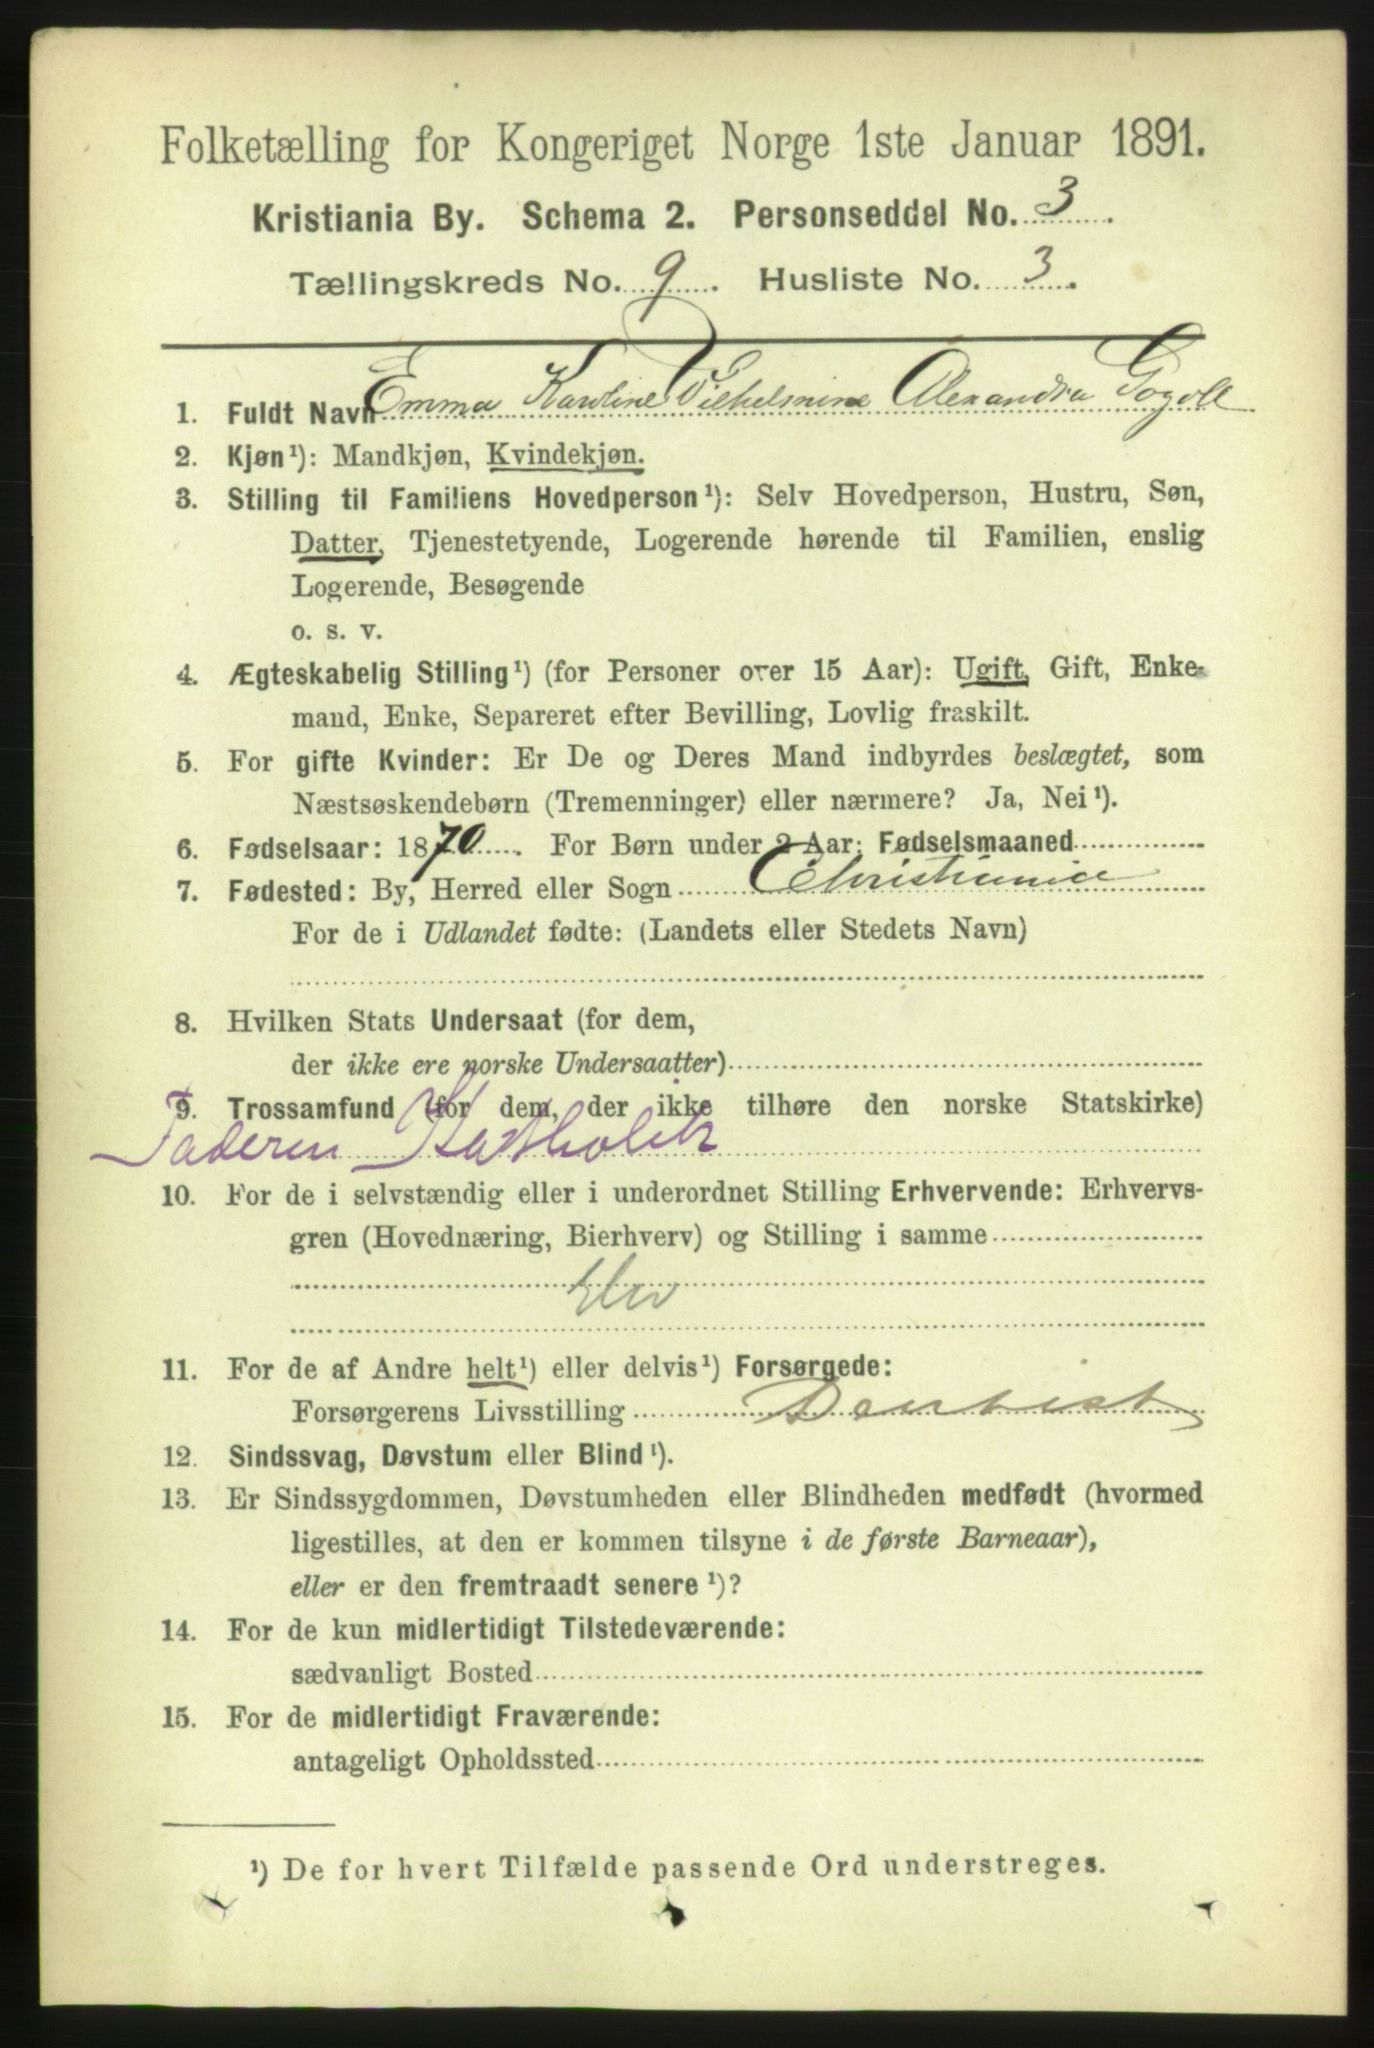 Folketælling for Kongeriget Norge 1ste Januar 1891.
Kristiania By. Schema 2. Personseddel No. 3.
Tællingskreds No. 9. Husliste No. 3.
1. Fuldt Navn Emma Karoline Vilhelmine Alexandra Gogoll
2. Kjøn¹): Mandkjøn, Kvindekjøn.
3. Stilling til Familiens Hovedperson¹): Selv Hovedperson, Hustru, Søn,
Datter, Tjenestetyende, Logerende hørende til Familien, enslig
Logerende, Besøgende
o. s. v.
4. Ægteskabelig Stilling¹) (for Personer over 15 Aar): Ugift, Gift, Enke-
mand, Enke, Separeret efter Bevilling, Lovlig fraskilt.
5. For gifte Kvinder: Er De og Deres Mand indbyrdes beslægtet, som
Næstsøskendebørn (Tremenninger) eller nærmere? Ja, Nei¹).
6. Fødselsaar: 1870. For Børn under 2 Aar: Fødselsmaaned
7. Fødested: By, Herred eller Sogn Christiania
For de i Udlandet fødte: (Landets eller Stedets Navn)
8. Hvilken Stats Undersaat (for dem,
der ikke ere norske Undersaatter)
9. Trossamfund (for dem, der ikke tilhøre den norske Statskirke)
Faderen Katholik
10. For de i selvstændig eller i underordnet Stilling Erhvervende: Erhvervs-
gren (Hovednæring, Bierhverv) og Stilling i samme
Elev
11. For de af Andre helt¹) eller delvis¹) Forsørgede:
Forsørgerens Livsstilling Dentist
12. Sindssvag, Døvstum eller Blind¹).
13. Er Sindssygdommen, Døvstumheden eller Blindheden medfødt (hvormed
ligestilles, at den er kommen tilsyne i de første Barneaar),
eller er den fremtraadt senere¹)?
14. For de kun midlertidigt Tilstedeværende:
sædvanligt Bosted
15. For de midlertidigt Fraværende:
antageligt Opholdssted
¹) De for hvert Tilfælde passende Ord understreges.